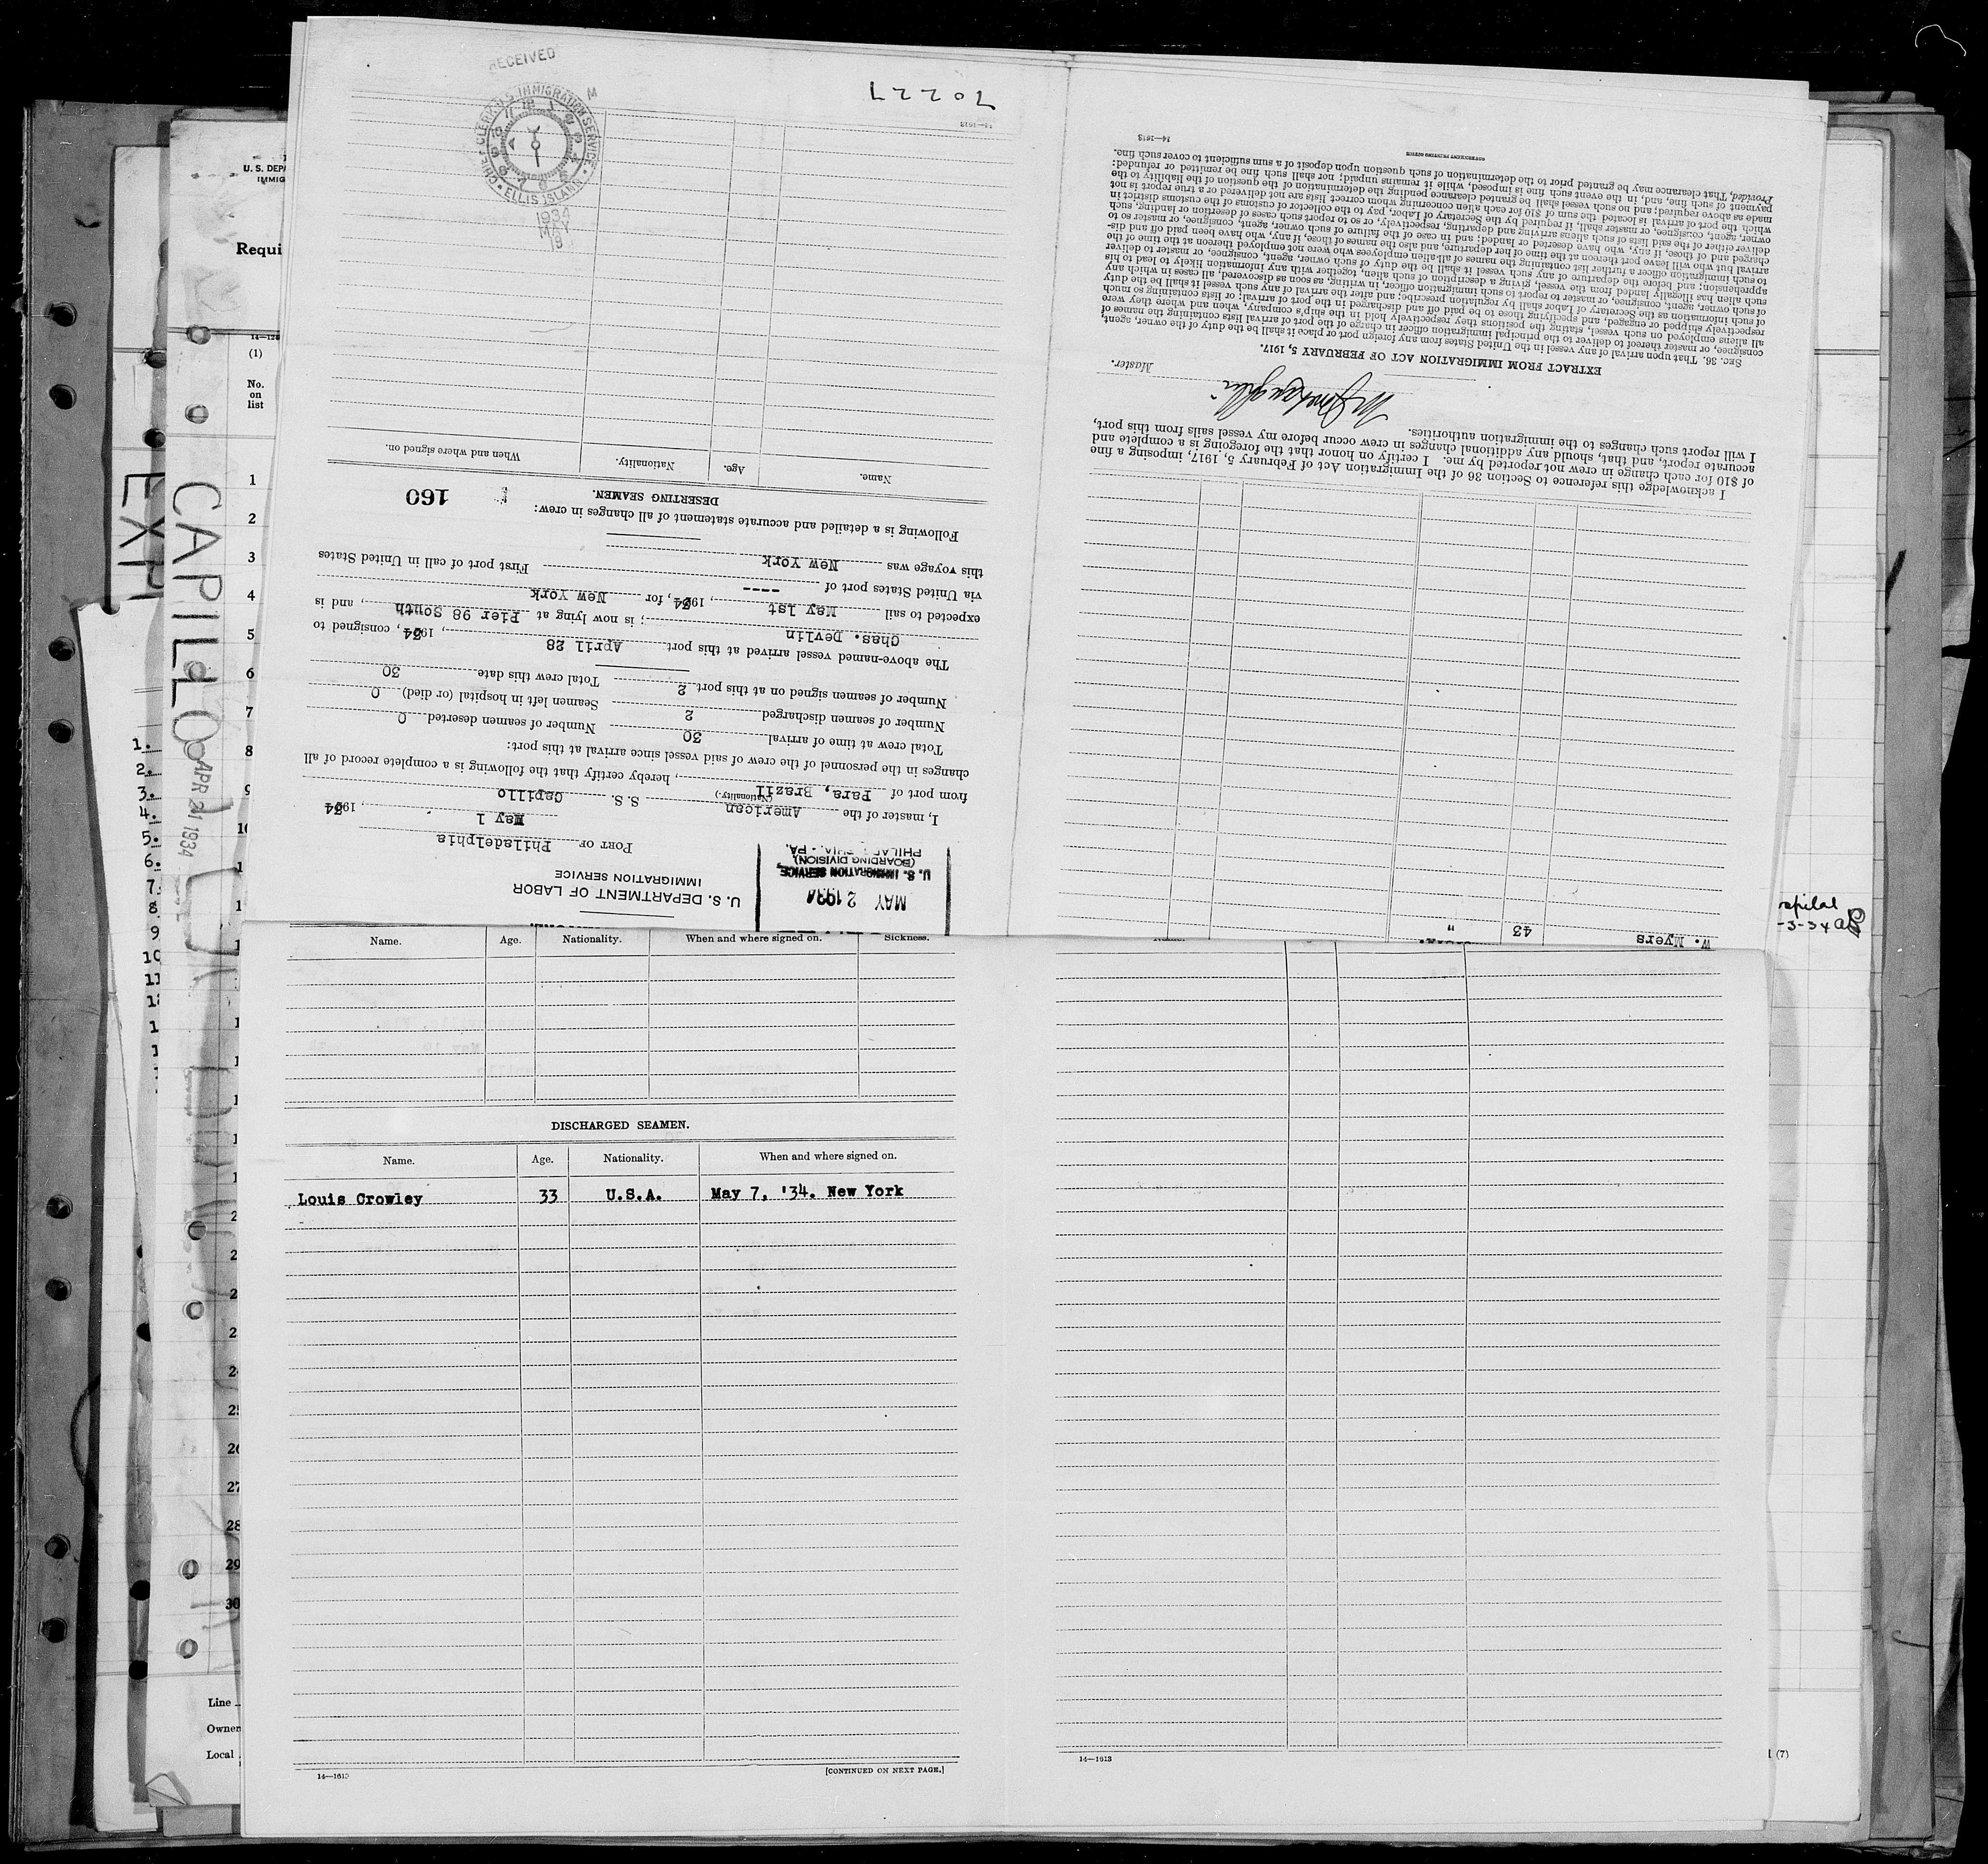 RECEIVED
CHIEF CLERK U.S. IMMIGRATION SERVICE · ELLIS ISLAND ·
1934
MAY
19
M
70227
U. S. DEPARTMENT OF LABOR
IMMIGRATION SERVICE
MAY 2 1934
U. S. IMMIGRATION SERVICE
(BOARDING DIVISION)
PORT OF Philadelphia
May 1, 1934
I, master of the American S. S. Capillo
(Nationality.)
from port of Para, Brazil, hereby certify that the following is a complete record of all
changes in the personnel of the crew of said vessel since arrival at this port:
Total crew at time of arrival 30 Number of seamen deserted 0
Number of seamen discharged 2 Seamen left in hospital (or died) 0
Number of seamen signed on at this port 2 Total crew this date 30
The above-named vessel arrived at this port April 28, 1934, consigned to
Chas. Devlin; is now lying at Pier 98 South, and is
expected to sail May 1st, 1934, for New York
via United States port of ---- First port of call in United States
this voyage was New York
Following is a detailed and accurate statement of all changes in crew:
DESERTING SEAMEN.
160
Name. Age. Nationality. When and where signed on.
14—1613
W. Myers 43 "
I acknowledge this reference to Section 36 of the Immigration Act of February 5, 1917, imposing a fine
of $10 for each change in crew not reported by me. I certify on honor that the foregoing is a complete and
accurate report, and that, should any additional changes in crew occur before my vessel sails from this port,
I will report such changes to the immigration authorities.
Master.
EXTRACT FROM IMMIGRATION ACT OF FEBRUARY 5, 1917.
SEC. 36. That upon arrival of any vessel in the United States from any foreign port or place it shall be the duty of the owner, agent,
consignee, or master thereof to deliver to the principal immigration officer in charge of the port of arrival lists containing the names of
all aliens employed on such vessel, stating the positions they respectively hold in the ship's company, when and where they were
respectively shipped or engaged, and specifying those to be paid off and discharged in the port of arrival; or lists containing so much
of such information as the Secretary of Labor shall by regulation prescribe; and after the arrival of any such vessel it shall be the duty
of such owner, agent, consignee, or master to report to such immigration officer, in writing, as soon as discovered, all cases in which any
such alien has illegally landed from the vessel, giving a description of such alien, together with any information likely to lead to his
apprehension; and before the departure of any such vessel it shall be the duty of such owner, agent, consignee, or master to deliver
to such immigration officer a further list containing the names of all alien employees who were not employed thereon at the time of the
arrival but who will leave port thereon at the time of her departure, and also the names of those, if any, who have been paid off and dis-
charged and of those, if any, who have deserted or landed; and in case of the failure of such owner, agent, consignee, or master so to
deliver either of the said lists of such aliens arriving and departing, respectively, or so to report such cases of desertion or landing, such
owner, agent, consignee, or master shall, if required by the Secretary of Labor, pay to the collector of customs of the customs district in
which the port of arrival is located the sum of $10 for each alien concerning whom correct lists are not delivered or a true report is not
made as above required; and no such vessel shall be granted clearance pending the determination of the question of the liability to the
payment of such fine, and, in the event such fine is imposed, while it remains unpaid; nor shall such fine be remitted or refunded:
Provided, That clearance may be granted prior to the determination of such question upon deposit of a sum sufficient to cover such fine.
GOVERNMENT PRINTING OFFICE
14—1613
Name. Age. Nationality. When and where signed on. Sickness.
DISCHARGED SEAMEN.
Name. Age. Nationality. When and where signed on.
Louis Crowley 33 U.S.A. May 7, '34. New York
14—1613
[CONTINUED ON NEXT PAGE.]
14—1613
U. S. DEPA
IMMIG
Requi
14—120
(1)
No.
on
list
1
2
3
4
5
6
7
8
9
10
25
26
27
28
29
30
Line
Owner
Local
CAPILLO
APR 21 1934
EXP
1.
2.
3.
4.
5.
6.
7.
8
9
10
11
-3-34
(7)